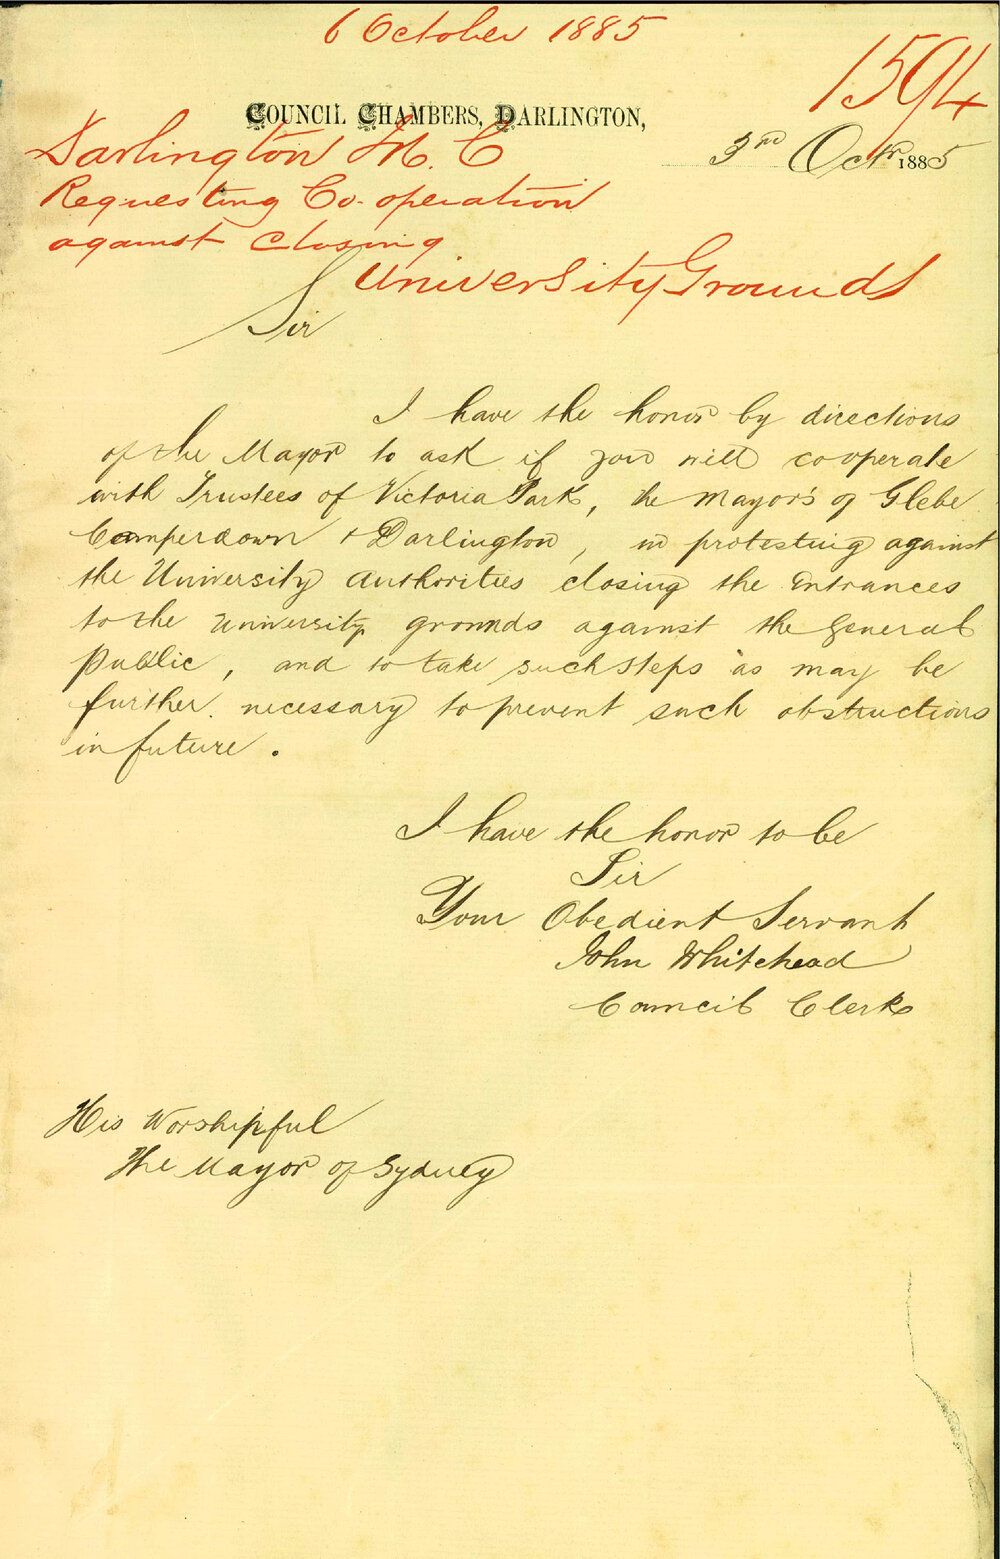 6 October 1885
1594
COUNCIL CHAMBERS, DARLINGTON,
3rd Octr. 1885
Darlington M. C
Requesting Co-operation
against closing
University Grounds
Sir
I have the honor by directions
of the Mayor to ask if you will cooperate
with Trustees of Victoria Park, the Mayor's of Glebe
Camperdown & Darlington, in protesting against
the University authorities closing the Entrances
to the University grounds against the General
Public, and to take such steps as may be
further necessary to prevent such obstructions
in future.
I have the honor to be
Sir
Your Obedient Servant
John Whitehead
Council Clerk
His Worshipful
The Mayor of Sydney